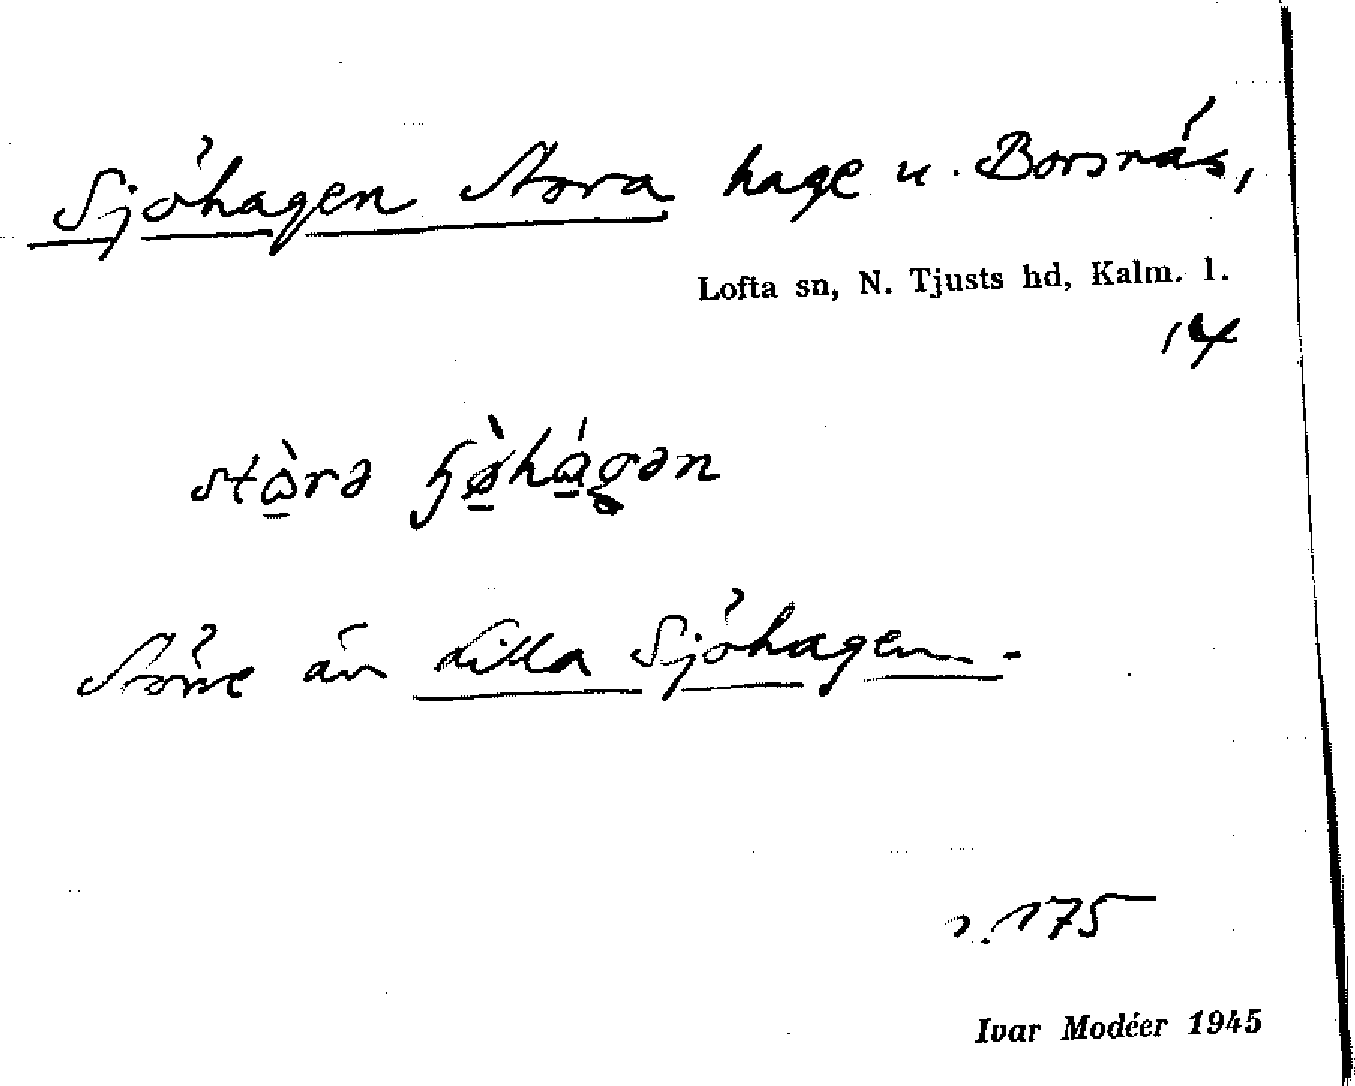 Sjöhagen Stora hage u. Borsnäs,
Lofta sn, N. Tjusts hd, Kalm. l.
14
Större än Lilla Sjöhagen.
175
Ivar Modéer 1945